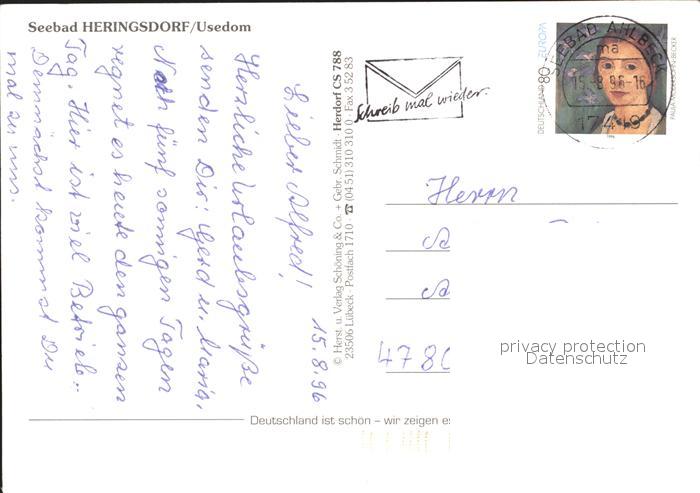 Seebad HERINGSDORF/Usedom
15.8.96
Lieber Alfred!
Herzliche Urlaubsgrüße
senden Dir: Gerd u. Maria.
Nach fünf sonnigen Tagen
regnet es heute den ganzen
Tag. Hier ist viel Betrieb.
Demnächst kommst Du
mal zu uns.
© Herst. u. Verlag Schöning & Co. + Gebr. Schmidt · Herdorf CS 788
23506 Lübeck · Postfach 1710 · ☎ (04 51) 310 310 0 · Fax 3 52 83
Schreib mal wieder.
DEUTSCHLAND 80 EUROPA
PAULA MODERSOHN-BECKER
SEEBAD AHLBECK
ma
15.-8.96-16
17419
Herrn
privacy protection
Datenschutz
Deutschland ist schön – wir zeigen es